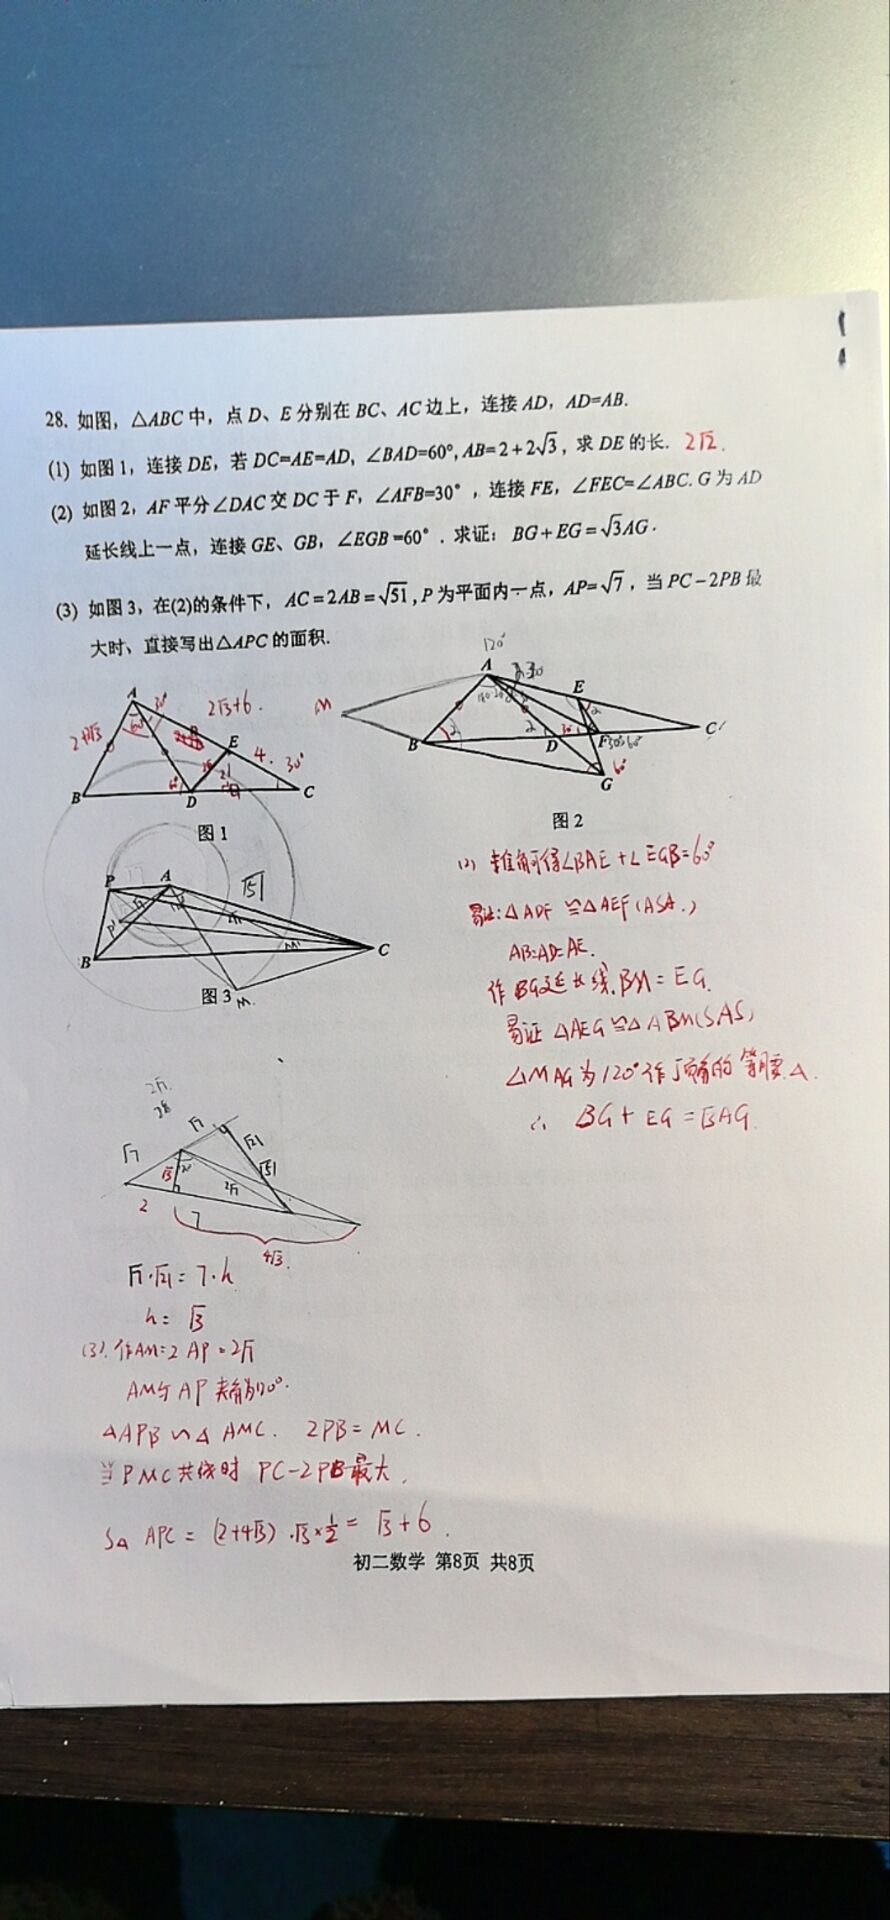 28. 如图，△ABC中，点D、E分别在BC、AC边上，连接AD，AD=AB.
(1) 如图1，连接DE，若DC=AE=AD, ∠BAD=60°, AB=2+2√3，求DE的长. 2√2.
(2) 如图2，AF平分∠DAC交DC于F，∠AFB=30°，连接FE，∠FEC=∠ABC. G为AD
延长线上一点，连接GE、GB，∠EGB=60°．求证：BG+EG=√3AG.
(3) 如图3，在(2)的条件下，AC=2AB=√51, P为平面内一点，AP=√7，当PC-2PB最
大时、直接写出△APC的面积.
120°
A
30°
2√3+6.
2+2√3
60°
E
4.
30°
B
D
C
图1
M
A
E
B
2
2
D
30°
F
C
60°
G
图2
P
A
√51
B
P'
M'
C
图3
M
(2) 得∠BAE+∠EGB=60°
易证:△ADF≌△AEF(ASA.)
AB=AD=AE.
作BG延长线,BM=EG.
易证 △AEG≌△ABM(SAS)
△MAG为120°作顶角的等腰△.
∴ BG+EG=√3AG.
2√7
√7
√7
√21
√3
120
2√7
√51
2
7
4√3.
√7·√21=7·h
h=√3
(3). 作AM=2AP=2√7
AM与AP夹角为120°.
△APB∽△AMC. 2PB=MC.
当PMC共线时 PC-2PB最大.
S△APC=(2+4√3)·√3×1/2=√3+6.
初二数学 第8页 共8页